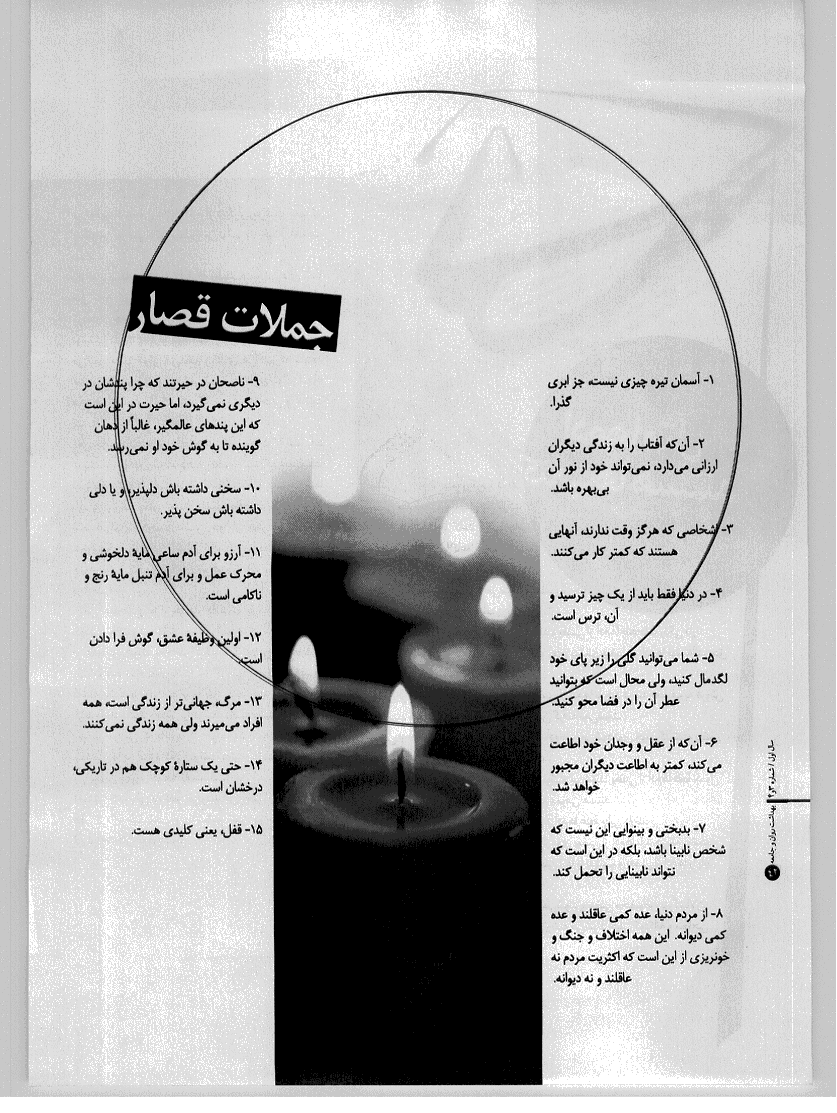 جملات قصار
۱- آسمان تیره چیزی نیست، جز ابری
گذرا.
۲- آن‌که آفتاب را به زندگی دیگران
ارزانی می‌دارد، نمی‌تواند خود از نور آن
بی‌بهره باشد.
۳- اشخاصی که هرگز وقت ندارند، آنهایی
هستند که کمتر کار می‌کنند.
۴- در دنیا فقط باید از یک چیز ترسید و
آن، ترس است.
۵- شما می‌توانید گلی را زیر پای خود
لگدمال کنید، ولی محال است که بتوانید
عطر آن را در فضا محو کنید.
۶- آن‌که از عقل و وجدان خود اطاعت
می‌کند، کمتر به اطاعت دیگران مجبور
خواهد شد.
۷- بدبختی و بینوایی این نیست که
شخص نابینا باشد، بلکه در این است که
نتواند نابینایی را تحمل کند.
۸- از مردم دنیا، عده کمی عاقلند و عده
کمی دیوانه. این همه اختلاف و جنگ و
خونریزی از این است که اکثریت مردم نه
عاقلند و نه دیوانه.
۹- ناصحان در حیرتند که چرا پندشان در
دیگری نمی‌گیرد، اما حیرت در این است
که این پندهای عالمگیر، غالباً از دهان
گوینده تا به گوش خود او نمی‌رسد.
۱۰- سخنی داشته باش دلپذیر، و یا دلی
داشته باش سخن پذیر.
۱۱- آرزو برای آدم ساعی مایهٔ دلخوشی و
محرک عمل و برای آدم تنبل مایهٔ رنج و
ناکامی است.
۱۲- اولین وظیفهٔ عشق، گوش فرا دادن
است.
۱۳- مرگ، جهانی‌تر از زندگی است، همه
افراد می‌میرند ولی همه زندگی نمی‌کنند.
۱۴- حتی یک ستارهٔ کوچک هم در تاریکی،
درخشان است.
۱۵- قفل، یعنی کلیدی هست.
سال اول / شماره ۳و۴
بهداشت روان و جامعه